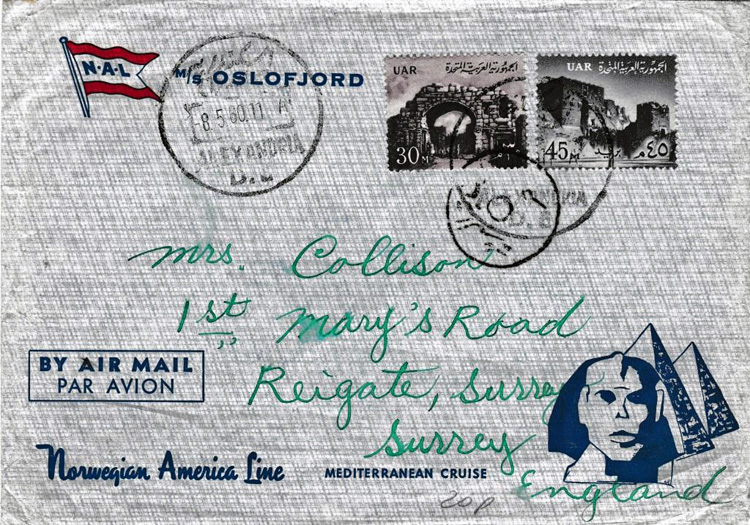 N·A·L
M/S OSLOFJORD
8 5 60.11
ALEXANDRIA
UAR الجمهورية العربية المتحدة
30 M
UAR الجمهورية العربية المتحدة
45 M بريد ٤٥
Mrs. Collison
1 St Mary's Road
Reigate, Surrey
Surrey
England
BY AIR MAIL
PAR AVION
Norwegian America Line
MEDITERRANEAN CRUISE
20p